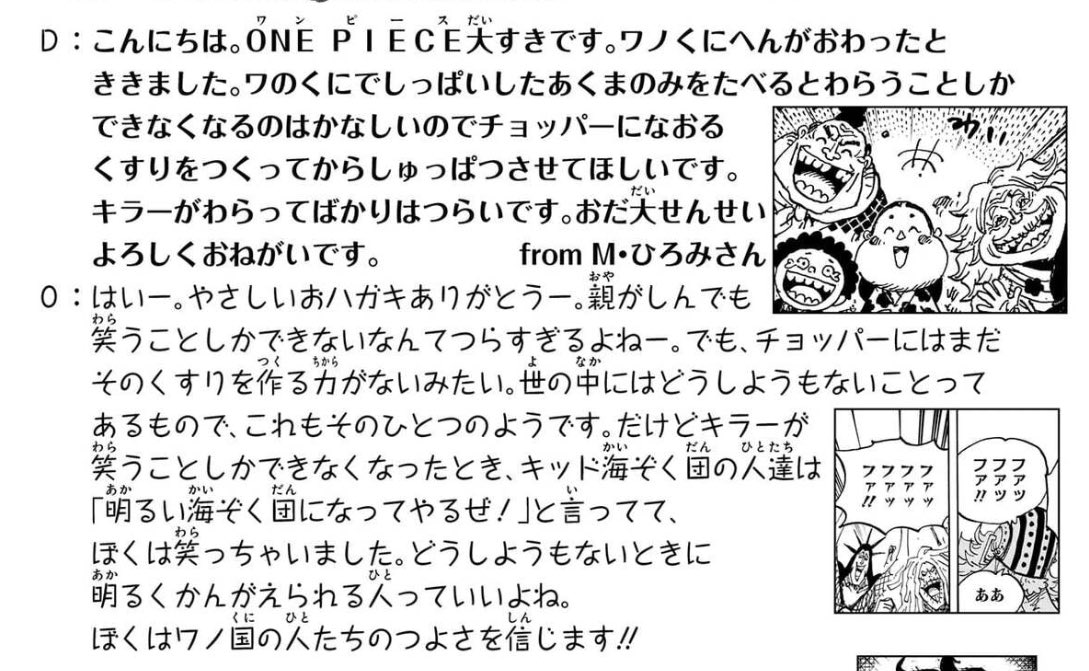 D：こんにちは。ONE PIECE大すきです。ワノくにへんがおわったと
ききました。ワのくにでしっぱいしたあくまのみをたべるとわらうことしか
できなくなるのはかなしいのでチョッパーになおる
くすりをつくってからしゅっぱつさせてほしいです。
キラーがわらってばかりはつらいです。おだ大せんせい
よろしくおねがいです。 from M•ひろみさん
O：はいー。やさしいおハガキありがとうー。親がしんでも
笑うことしかできないなんてつらすぎるよねー。でも、チョッパーにはまだ
そのくすりを作る力がないみたい。世の中にはどうしようもないことって
あるもので、これもそのひとつのようです。だけどキラーが
笑うことしかできなくなったとき、キッド海ぞく団の人達は
「明るい海ぞく団になってやるぜ！」と言ってて、
ぼくは笑っちゃいました。どうしようもないときに
明るくかんがえられる人っていいよね。
ぼくはワノ国の人たちのつよさを信じます!!
ファッ
ファッ
ファ!!
ファッ
ファッ
ファッ
ファッ
ファ!!
ああ